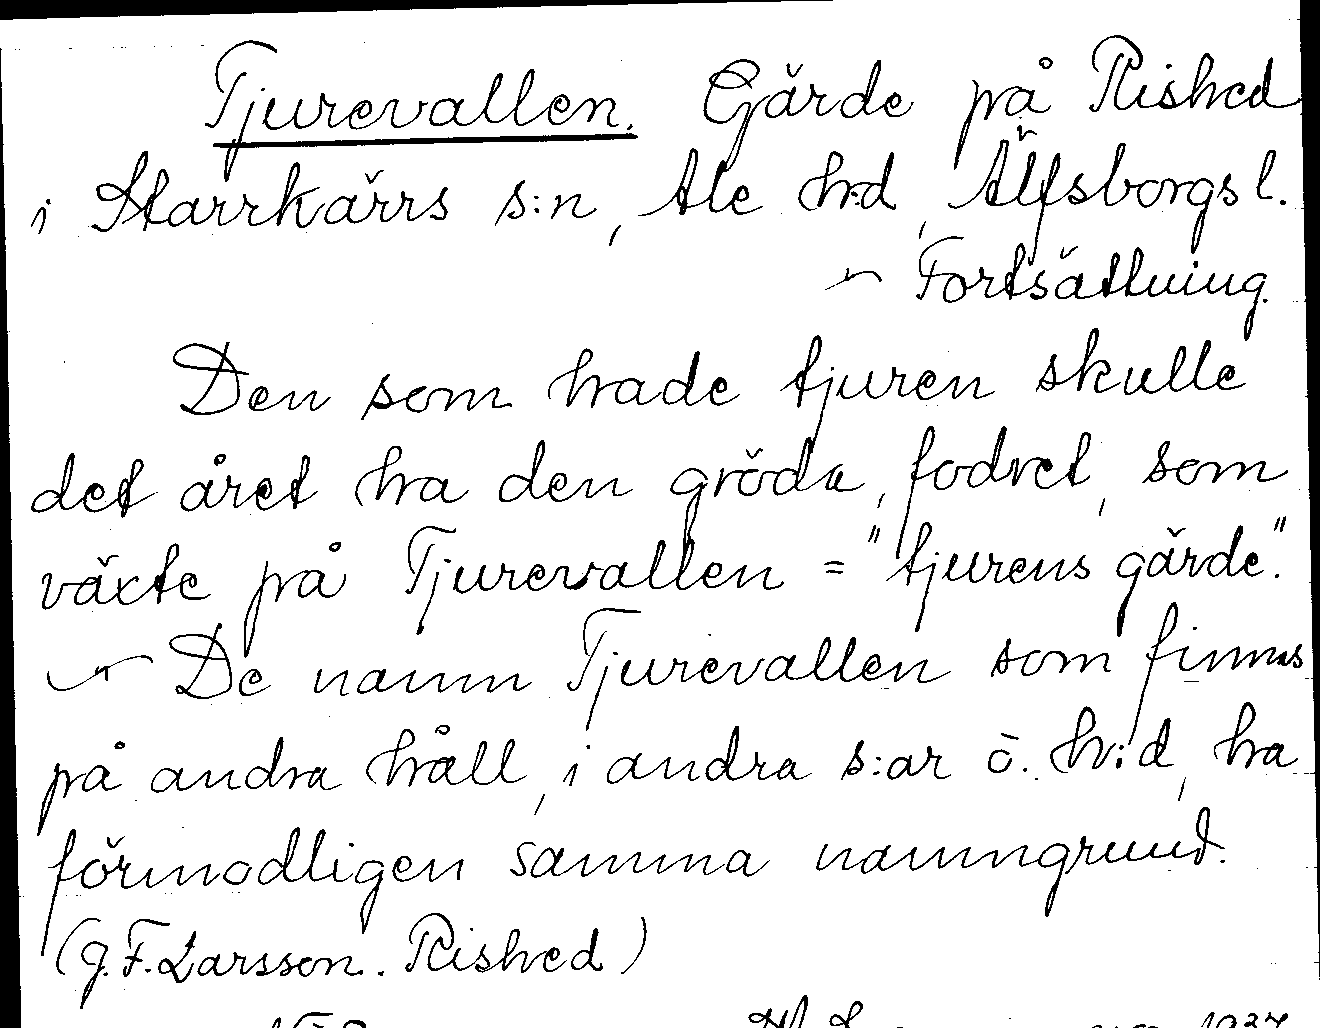 Tjurevallen. Gärde på Rished
i Starrkärrs s:n, Ale h:d, Älfsborgs l.
~ Fortsättning.
Den som hade tjuren skulle
det året ha den gröda, fodret, som
växte på Tjurevallen = "tjurens gärde".
~ De namn Tjurevallen som finnas
på andra håll, i andra s:ar o. h:d, ha
förmodligen samma namngrund.
(G. F. Larsson. Rished)
1937